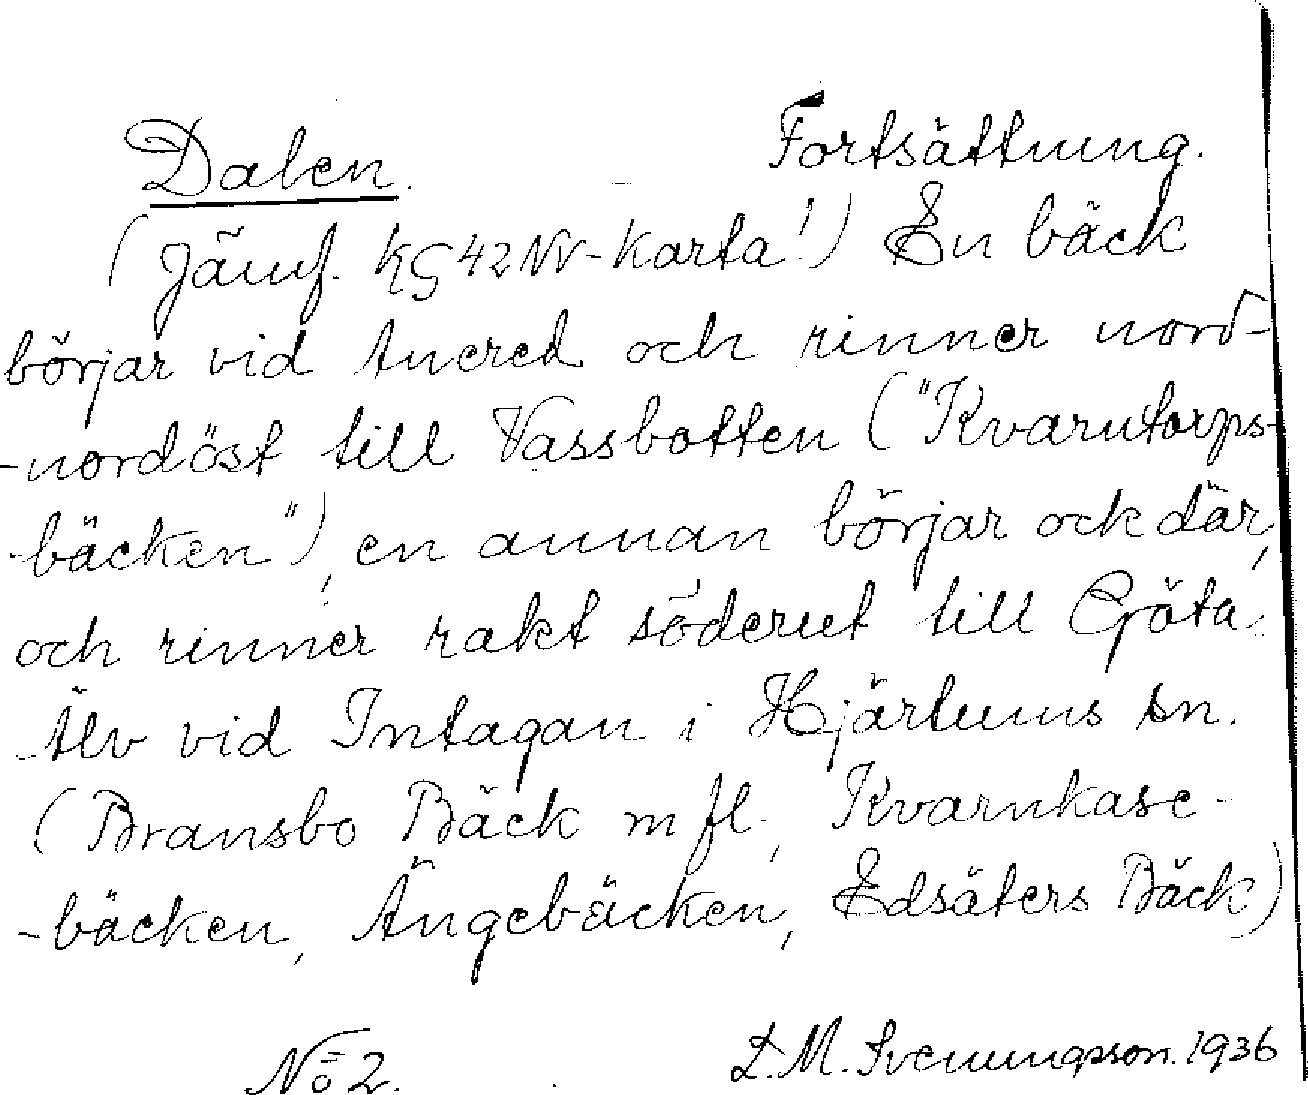 Dalen. Fortsättning.
(Jämf. KG 42 NV-Karta!) En bäck
börjar vid Anered och rinner nord-
-nordöst till Vassbotten ("Kvarntorps-
-bäcken"), en annan börjar ock där,
och rinner rakt söderut till Göta
Älv vid Intagan i Hjärtums sn.
(Bransbo Bäck m fl., Kvarnkase-
-bäcken, Ängebäcken, Edsäters Bäck)
No 2. L. M. Svenungsson. 1936